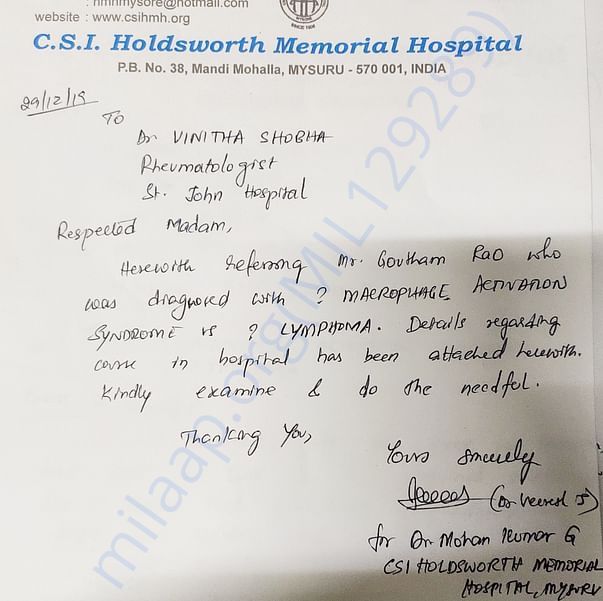 : hmhmysore@hotmail.com
website : www.csihmh.org
SINCE 1906
C.S.I. Holdsworth Memorial Hospital
P.B. No. 38, Mandi Mohalla, MYSURU - 570 001, INDIA
29/12/19
To
Dr VINITHA SHOBHA
Rheumatologist
St. John Hospital
Respected Madam,
Herewith referring Mr. Goutham Rao who
was diagnosed with ? MACROPHAGE ACTIVATION
SYNDROME vs ? LYMPHOMA. Details regarding
course in hospital has been attached herewith.
Kindly examine & do the needful.
Thanking You,
Yours sincerely
(Dr
for Dr Mohan Kumar G
CSI HOLDSWORTH MEMORIAL
HOSPITAL, MYSURU
milaap.org(MIL1292889)